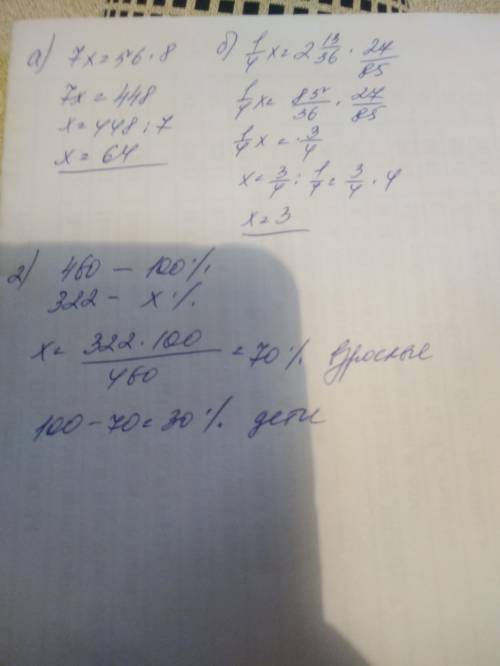 а) 7x=56·8
7x=448
x=448:7
x=64
б) 1/4 x=2 13/36 · 27/85
1/4 x= 85/36 · 27/85
1/4 x= 3/4
x= 3/4 : 1/4 = 3/4 · 4
x=3
2) 460 — 100%
322 — x%
x= 322·100/460 =70% взрослые
100-70=30% дети